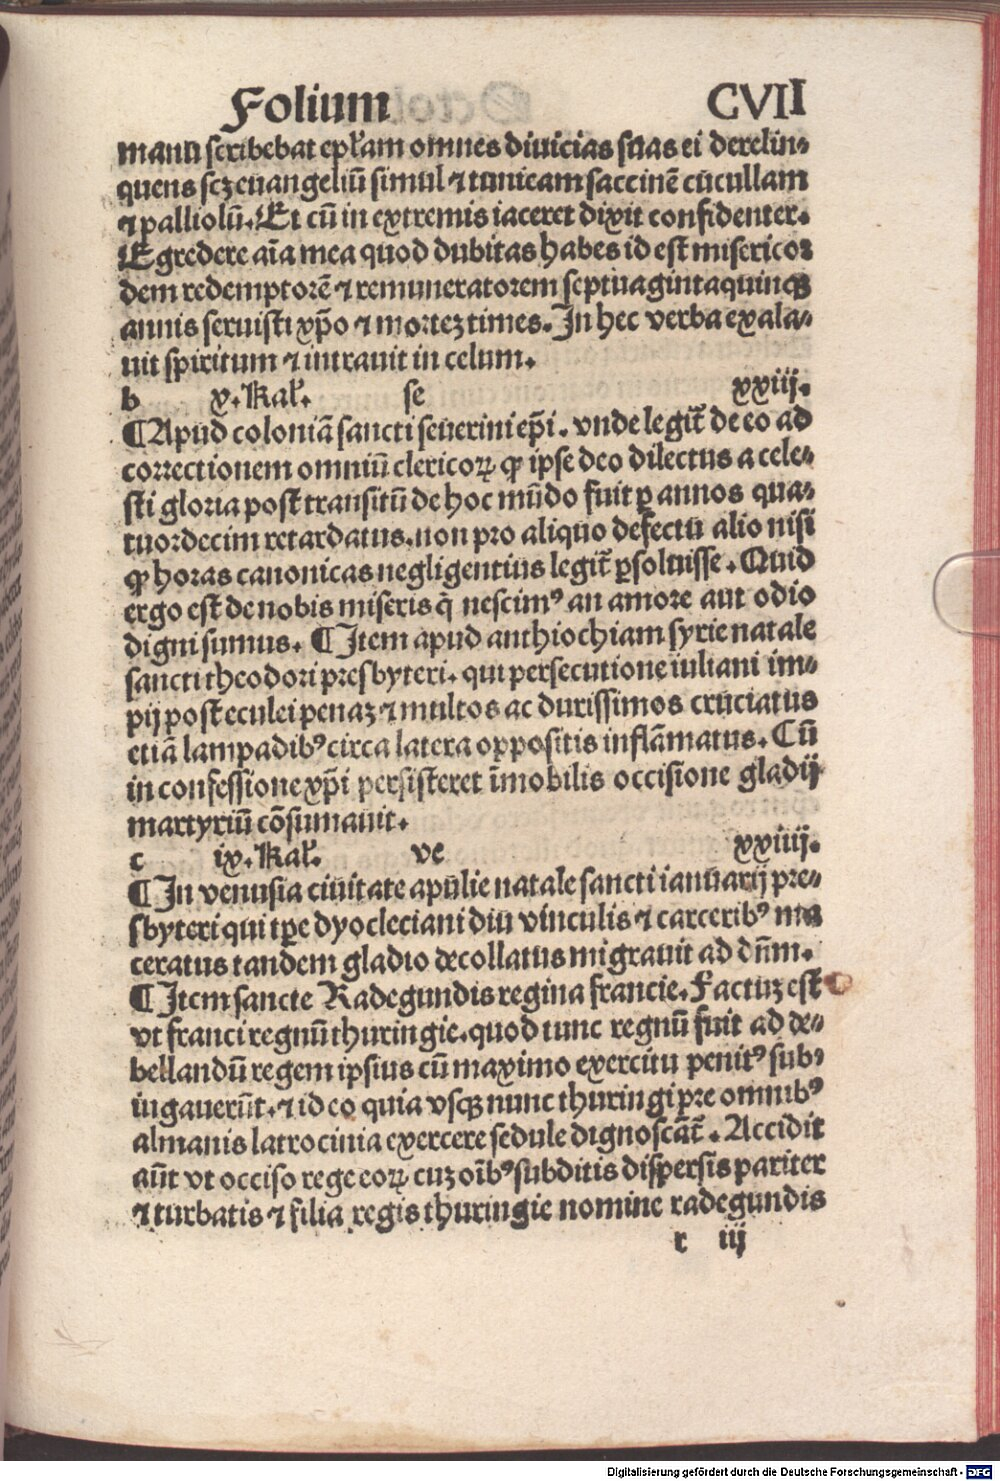 Folium CVII
manu scribebat epl̃am omnes diuicias suas ei derelin⸗
quens scꝫ euangeliũ simul ⁊ tunicam saccinẽ cucullam
⁊ palliolũ. Et cũ in extremis iaceret dixit confidenter.
Egredere aĩa mea quod dubitas habes id est misericoꝛ
dem redemptorẽ ⁊ remuneratorem septuagintaquinqꝫ
annis seruisti xp̃o ⁊ moꝛteꝫ times. In hec verba exala⸗
uit spiritum ⁊ intrauit in celum.
b x. Kal̃. se xxiij.
¶Apud coloniã sancti seuerini ep̃i. vnde legit̃ de eo ad
correctionem omniũ clericoꝝ ꝙ ipse deo dilectus a cele⸗
sti gloria post transitũ de hoc mũdo fuit ꝑ annos qua⸗
tuoꝛdecim retardatus. non pro aliquo defectu alio nisi
ꝙ horas canonicas negligentius legit̃ ꝑsoluisse. Quid
ergo est de nobis miseris q̃ nescimꝰ an amore aut odio
digni sumus. ¶Item apud anthiochiam syrie natale
sancti theodori presbyteri. qui persecutione iuliani im⸗
pij post eculei penaꝫ ⁊ multos ac durissimos cruciatus
etiã lampadibꝰ circa latera oppositis inflãmatus. Cũ
in confessione xp̃i persisteret ĩmobilis occisione gladij
martyriũ cõsumauit.
c ix. Kal̃. ve xxiiij.
¶In venusia ciuitate apulie natale sancti ianuarij pre⸗
sbyteri qui tꝑe dyocleciani diu vinculis ⁊ carceribꝰ ma
ceratus tandem gladio decollatus migrauit ad dñm.
¶Item sancte Radegundis regina francie. Factuꝫ est
vt franci regnũ thuringie. quod tunc regnũ fuit ad de⸗
bellandũ regem ipsius cũ maximo exercitu penitꝰ sub⸗
iugauerũt. ⁊ ideo quia vsqꝫ nunc thuringi pre omnibꝰ
almanis latrocinia exercere sedule dignoscãt̃. Accidit
aũt vt occiso rege eoꝝ cuꝫ oĩbꝰ subditis dispersis pariter
⁊ turbatis ⁊ filia regis thuringie nomine radegundis
r iij
Digitalisierung gefördert durch die Deutsche Forschungsgemeinschaft - DFG